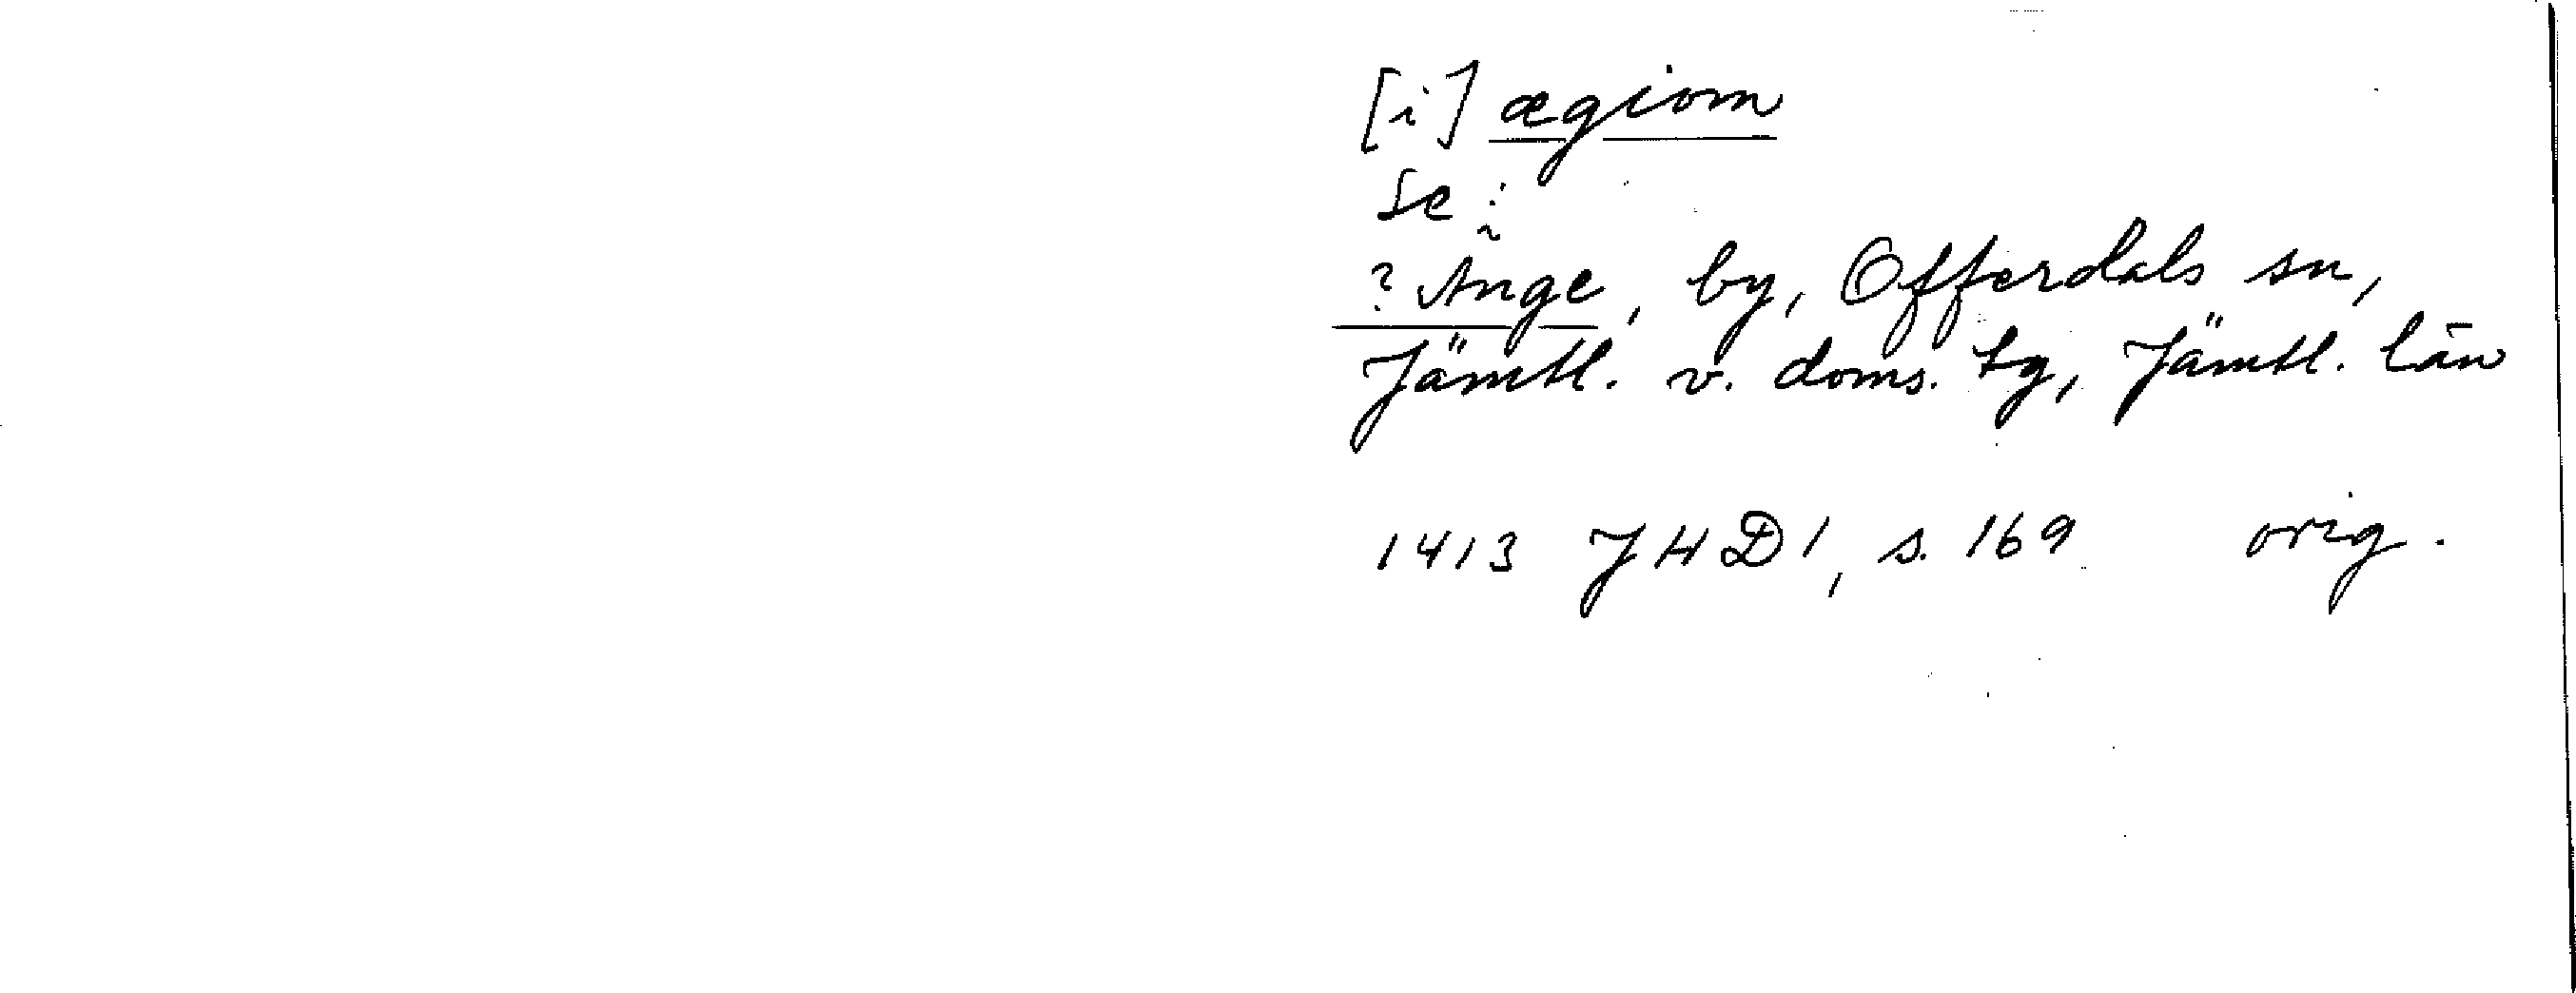 [i] ægiom
Se:
? Ånge, by, Offerdals sn,
Jämtl. v. doms. tg, Jämtl. län
1413 JHD 1, s. 169 orig.